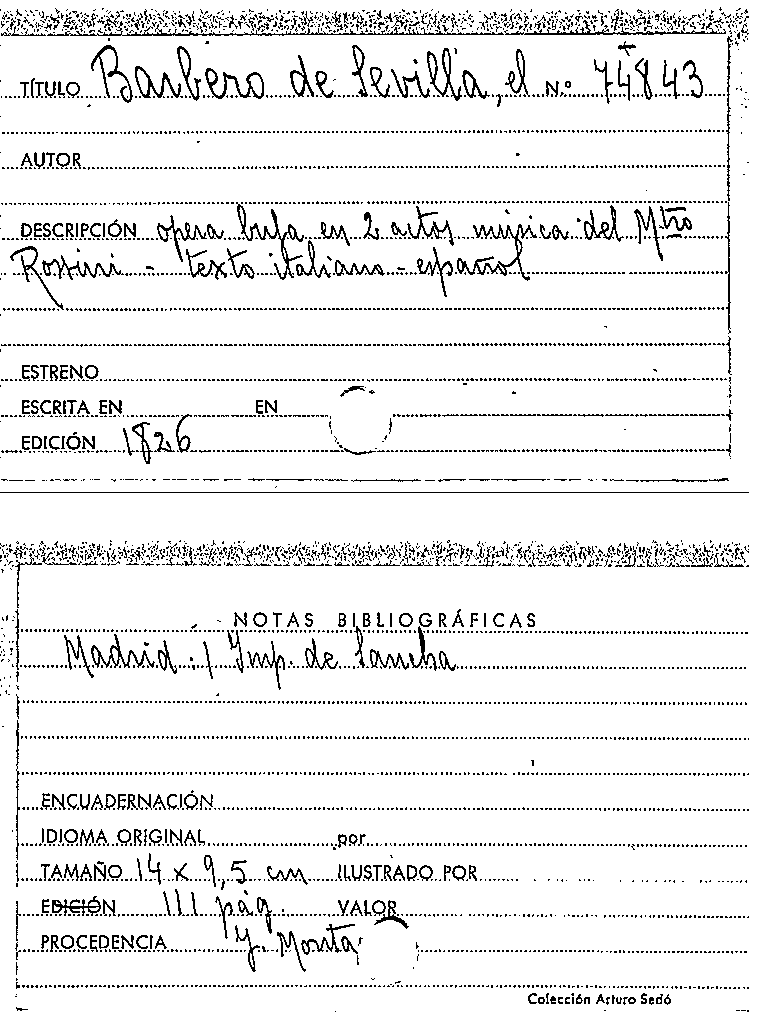 TÍTULO Barbero de Sevilla, el N.o 74843
AUTOR
DESCRIPCIÓN opera bufa en 2 actos música del Mtro
Rossini - texto italiano - español
ESTRENO
ESCRITA EN EN
EDICIÓN 1826
NOTAS BIBLIOGRÁFICAS
Madrid : Imp. de Sancha
ENCUADERNACIÓN
IDIOMA ORIGINAL por
TAMAÑO 14 x 9,5 cm ILUSTRADO POR
EDICIÓN 111 pág. VALOR
PROCEDENCIA
Colección Arturo Sedó